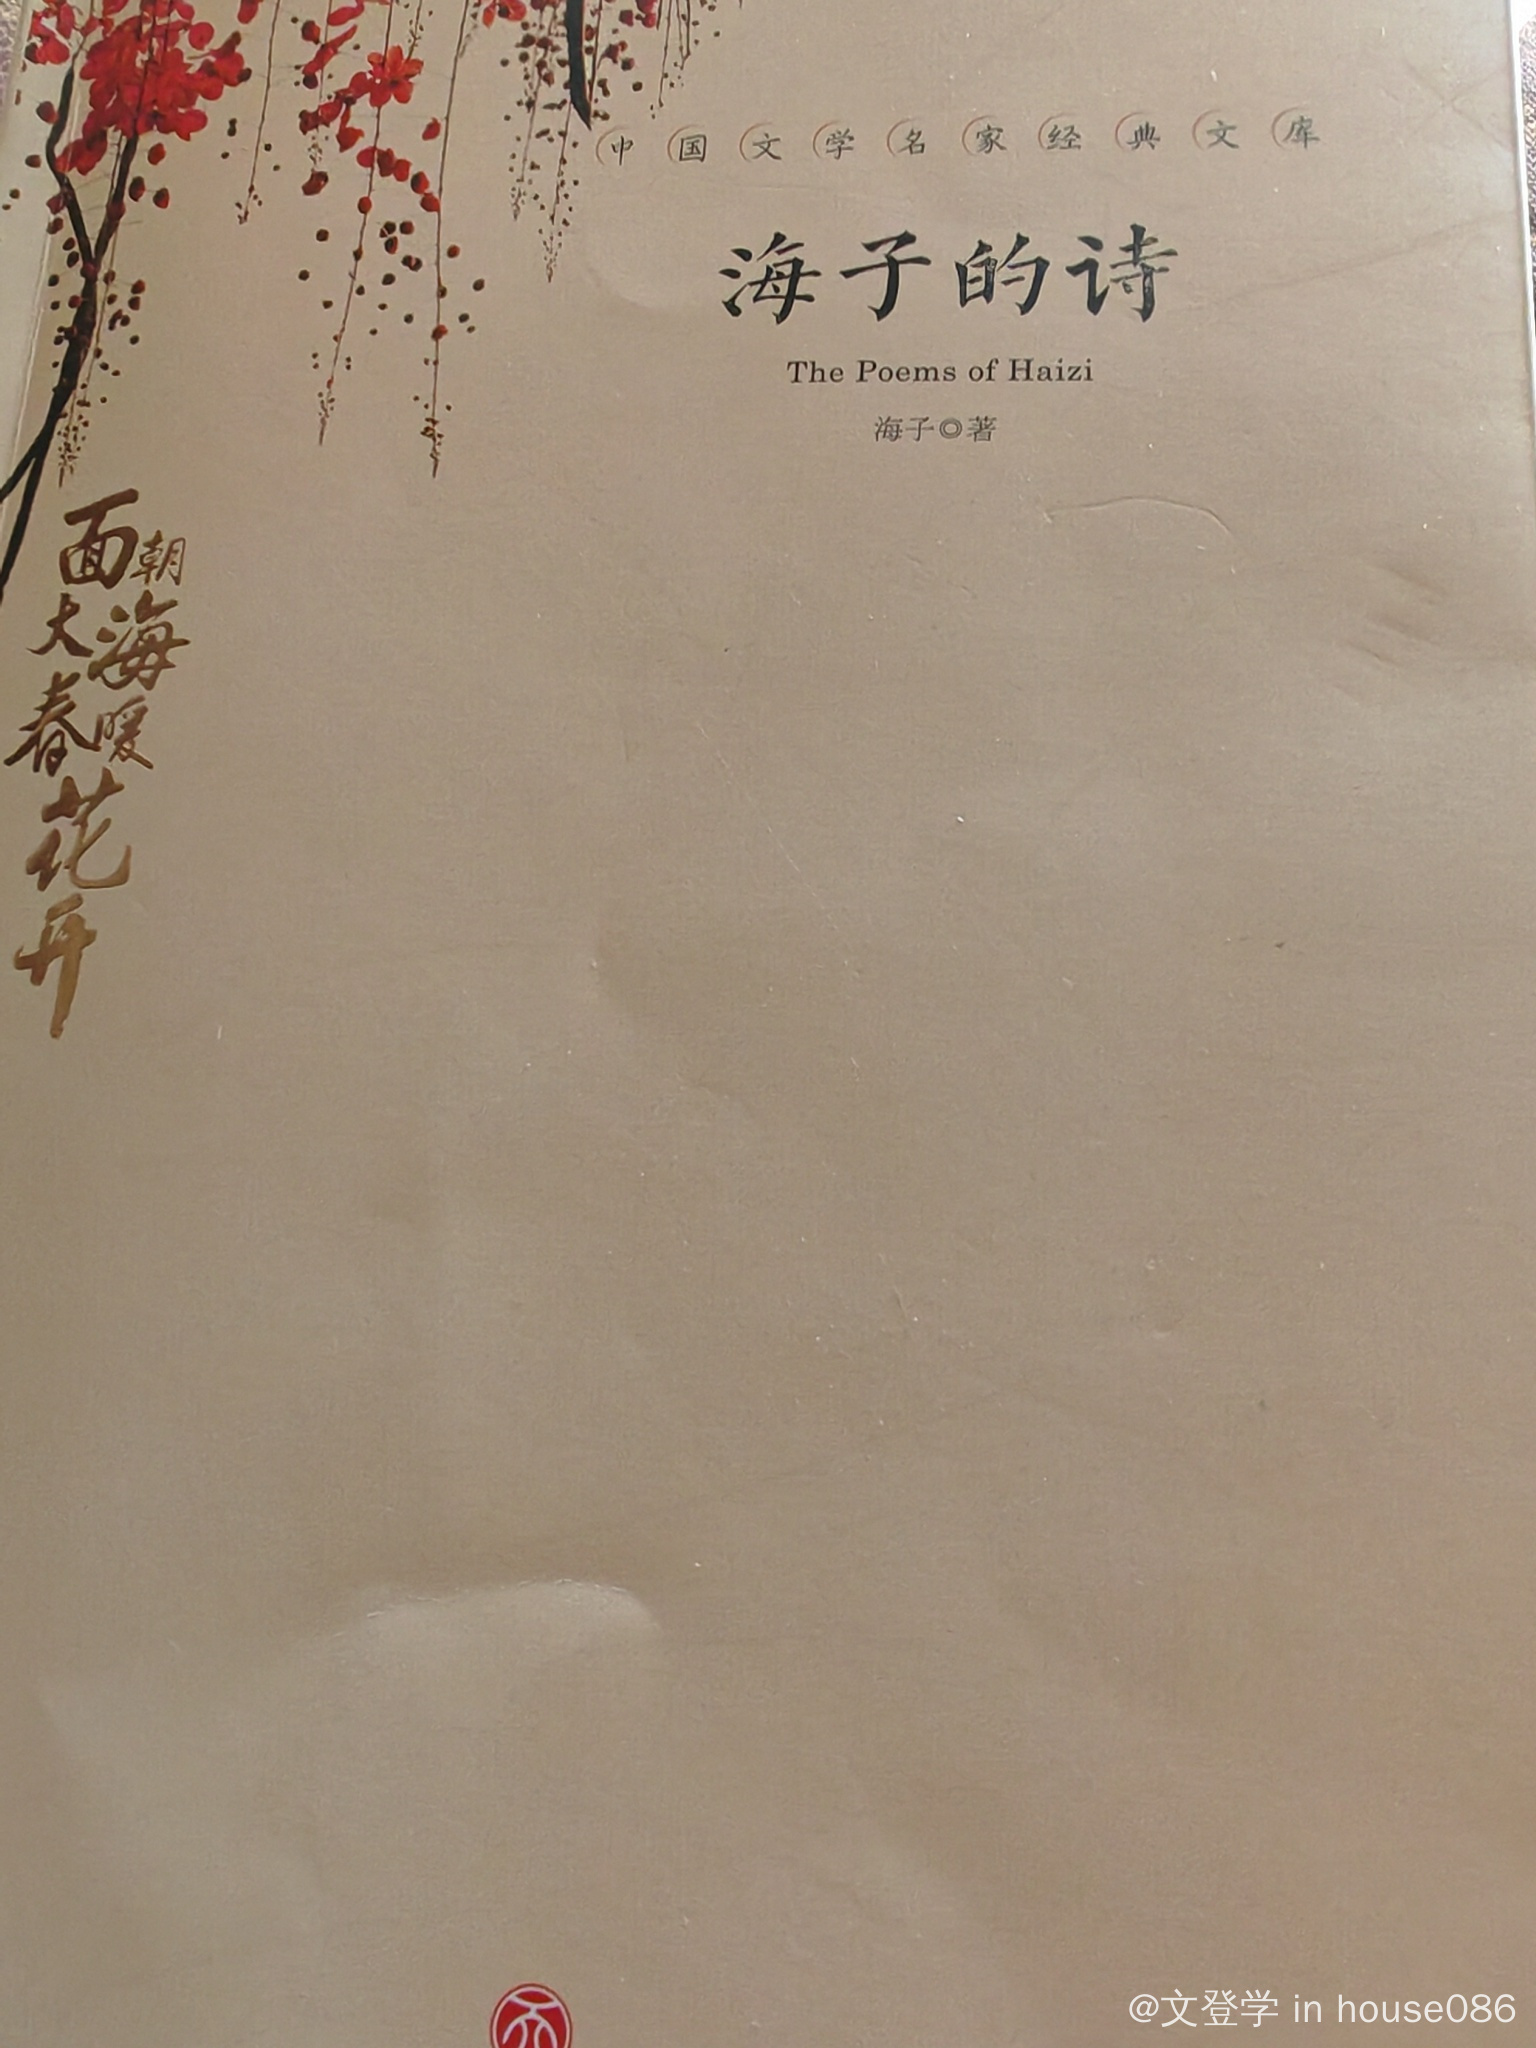 中国文学名家经典文库
海子的诗
The Poems of Haizi
海子◎著
面朝
大海
春暖
花
开
@文登学 in house086